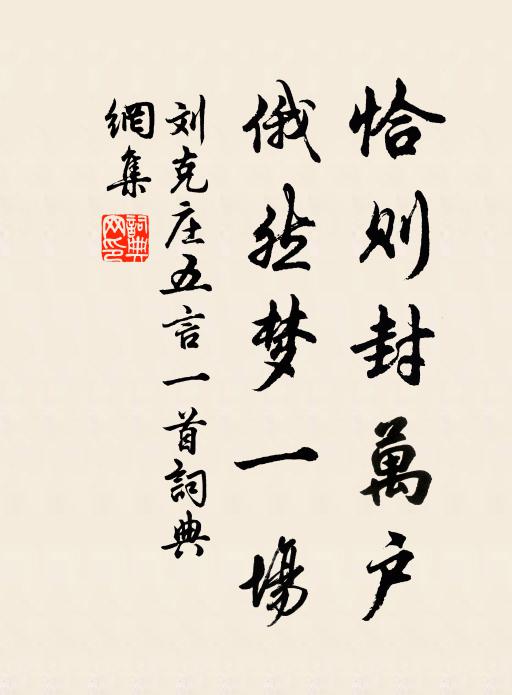 恰则封萬户
俄然梦一場
刘克庄五言一首詞典
網集
詞典網印